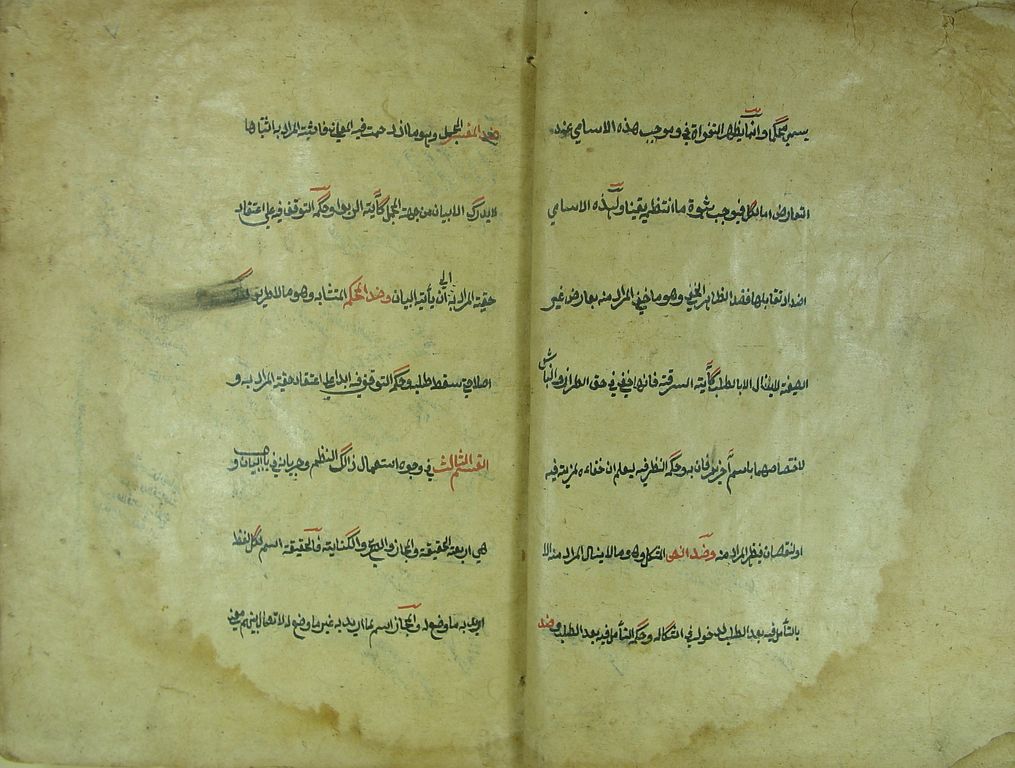 يسمي محكما وانما يظهر التفاوة في موجب هذه الاسامي عند
التعارض اما الكل فيوجب ثبوة ما انتظم يقينا ولهذه الاسامي
اضداد تقابلها فضد الظاهر الخفي وهو ما خفي المراد منه بعارض غير
الصيغة لاينال الا بالطلب كآية السرقة فانها خفي في حق الطرار والنباش
لاختصاصهما باسم آخر يعرفان به وحكمه النظر فيه ليعلم ان خفاءه لمزية فيه
او لنقصان فيظهر المراد منه وضد النص المشكل وهو ما لا ينال المراد منه الا
بالتأمل فيه بعد الطلب لدخوله في اشكاله وحكمه التأمل فيه بعد الطلب وضد
ضد المفسر المجمل وهو ما ازدحمت فيه المعاني فاوفيه المراد به اشتباها
لايدرك الا ببيان من جهة المجمل كآية الربوا وحكمه التوقف فيه علي اعتقاد
حقية المراد به الي ان يأتيه البيان وضد المحكم المتشابه وهو ما لا طريق
اصلا حتي سقط طلبه وحكمه التوقف فيه ابدا علي اعتقاد حقية المراد به و
القسم الثالث في وجوه استعمال ذالك النظم وجريانه في باب البيان و
هي اربعة الحقيقة والمجاز والصريح والكناية فالحقيقة اسم لكل لفظ
اريد به ما وضع له والمجاز اسم لما اريد به غير ما وضع له لاتصال بينهما معني